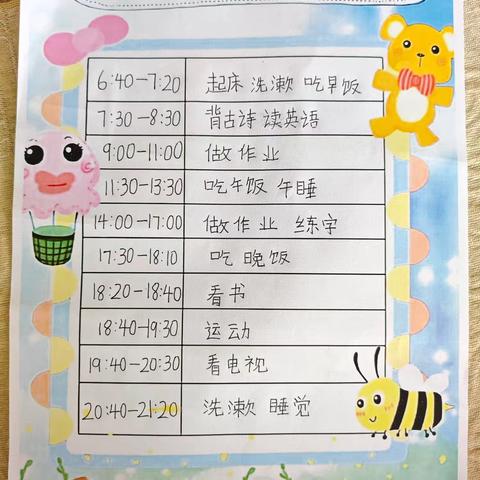 6:40-7:20 起床 洗漱 吃早饭
7:30-8:30 背古诗 读英语
9:00-11:00 做作业
11:30-13:30 吃午饭 午睡
14:00-17:00 做作业 练字
17:30-18:10 吃晚饭
18:20-18:40 看书
18:40-19:30 运动
19:40-20:30 看电视
20:40-21:20 洗漱 睡觉